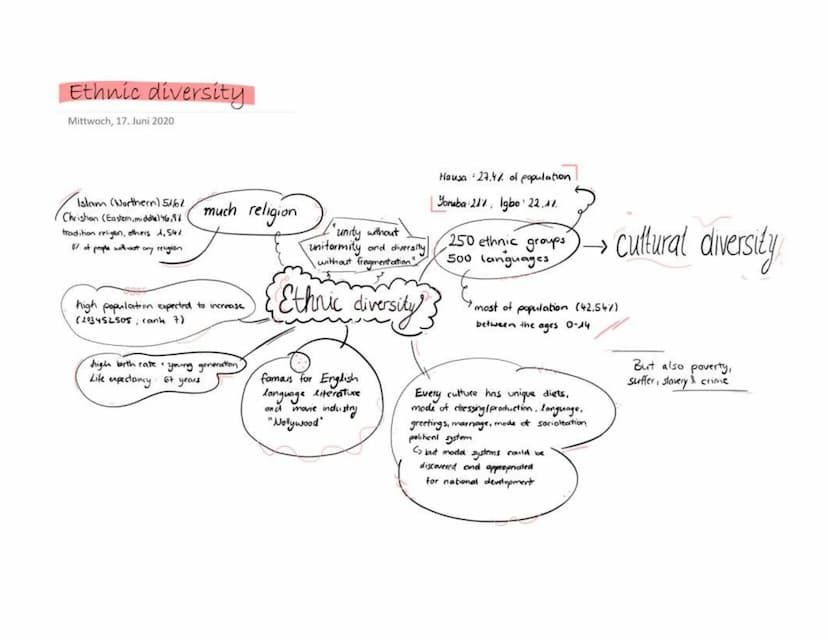 Ethnic diversity
Mittwoch, 17. Juni 2020
Hausa : 27,4% of population
Yoruba 21%, Igbo : 22,1%
Islam (Northern) 51,6%
Christian (Eastern, middle) 46,9%
tradition religion, others 1,54%
0% of people without any religion
much religion
"unity without
uniformity and diversity
without fragmentation"
250 ethnic groups
+
500 languages
→ cultural diversity
Ethnic diversity
high population expected to increase
(203452505 ; rank 7)
most of population (42,54%)
between the ages 0-14
high birth rate + young generation
Life expectancy : 67 years
famous for English
language literature
and movie industry
"Nollywood"
Every culture has unique diets,
mode of dressing/production, language,
greetings, marriage, mode of
political system
↳ but model systems could be
discovered and appropriated
for national development
But also poverty,
suffer, slavery & crime